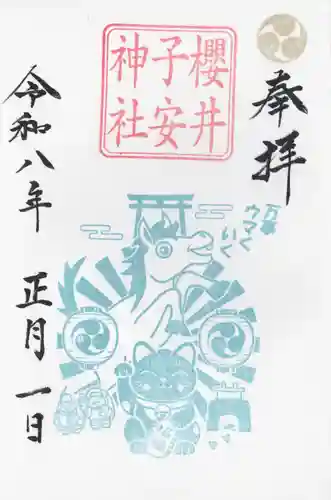 奉拝
櫻井
子安
神社
万事
ウマく
いく
令和八年 正月一日